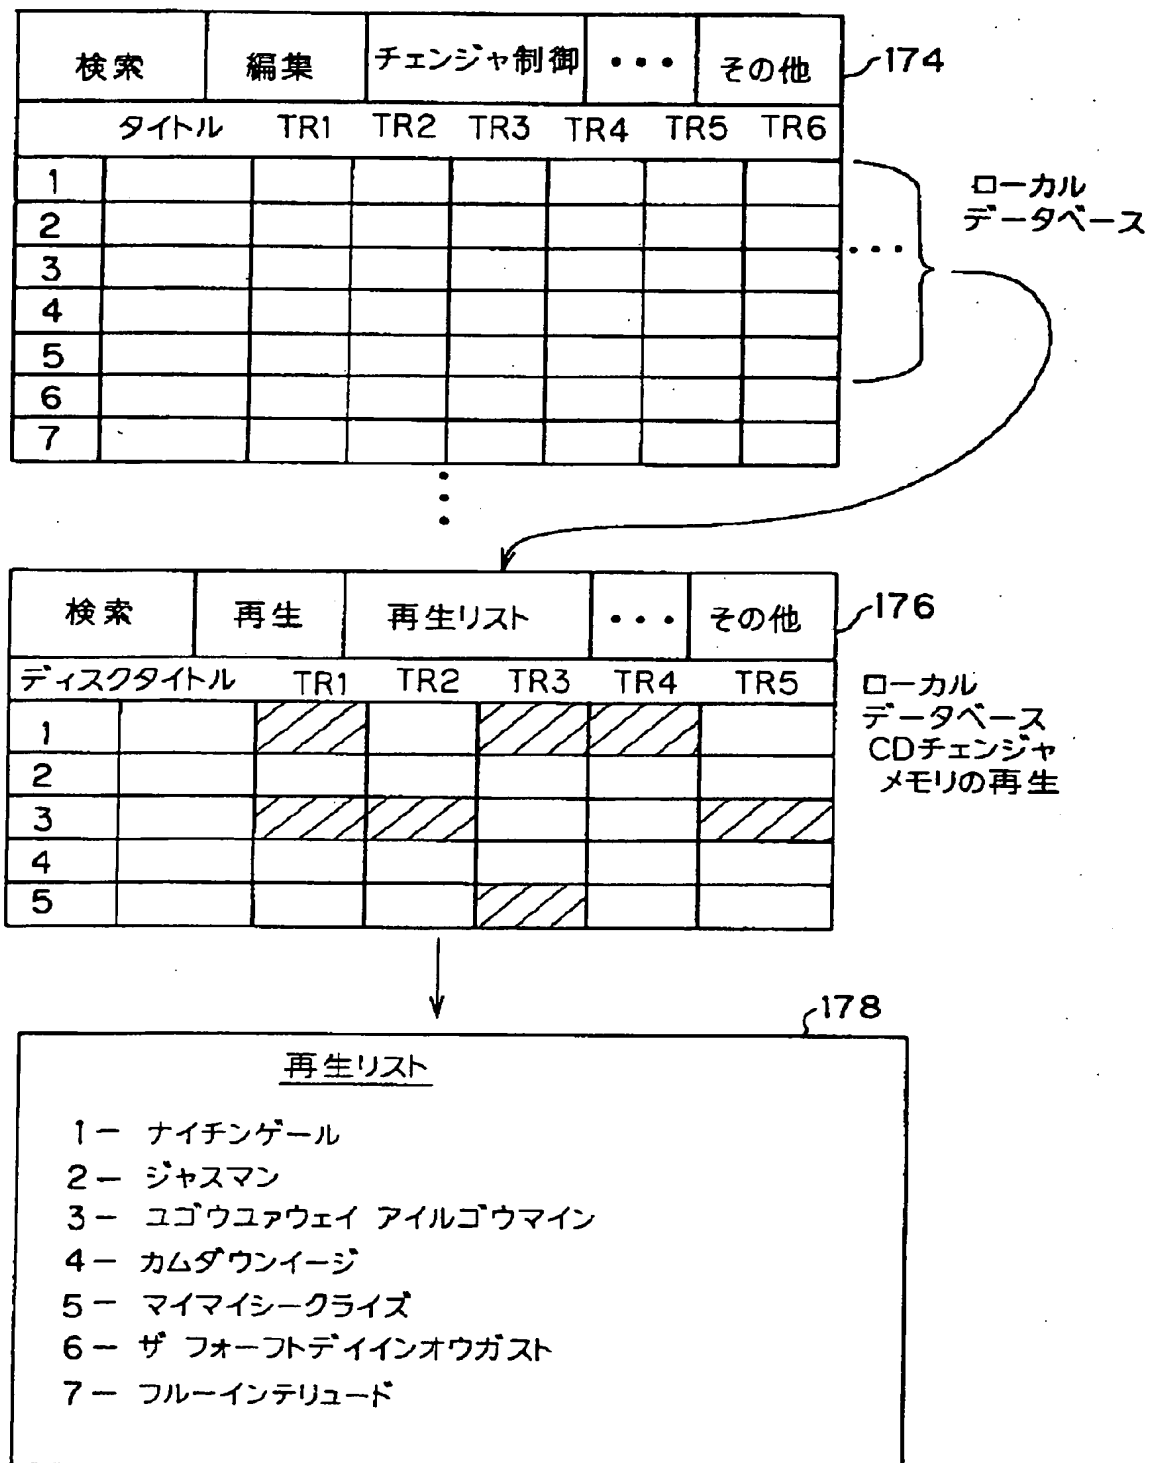 検索 編集 チェンジャ制御 ・・・ その他 174
タイトル TR1 TR2 TR3 TR4 TR5 TR6
1
2
3
4
5
6
7
ローカル
データベース
検索 再生 再生リスト ・・・ その他 176
ディスクタイトル TR1 TR2 TR3 TR4 TR5
1
2
3
4
5
ローカル
データベース
CDチェンジャ
メモリの再生
178
再生リスト
1ー ナイチンゲール
2ー ジャスマン
3ー ユゴウユアウェイ アイルゴウマイン
4ー カムダウンイージ
5ー マイマイシークライズ
6ー ザ フォーフトデイインオウガスト
7ー フルーインテリュード